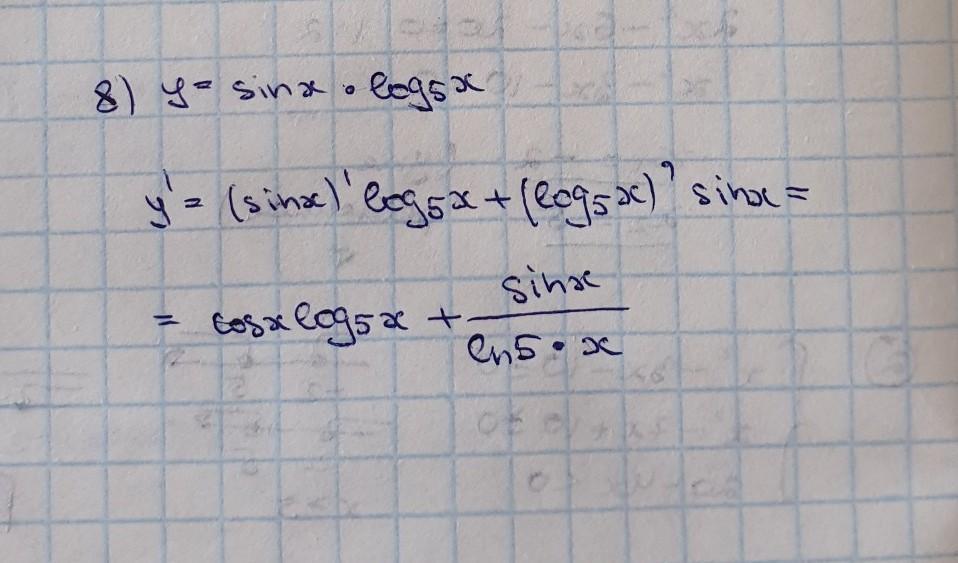 8) y = sinx · log₅x
y' = (sinx)' log₅x + (log₅x)' sinx =
= cosx log₅x + sinx / ln5 · x